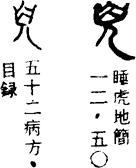 兒
睡虎地簡
一二·五〇
兒
五十二病方·
目録